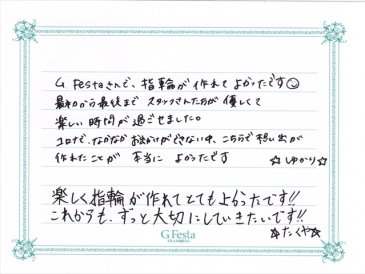 G.Festaさんで、指輪が作れてよかったです☺
最初から最後まで スタッフさんたちが優しくて
楽しい時間が過ごせました。
コロナで、なかなかお出かけができない中、こちらで想い出が
作れたことが 本当に よかったです
☆ゆかり☆
楽しく指輪が作れてとてもよかったです!!
これからも、ずっと大切にしていきたいです!!
☆たくや☆
G.Festa